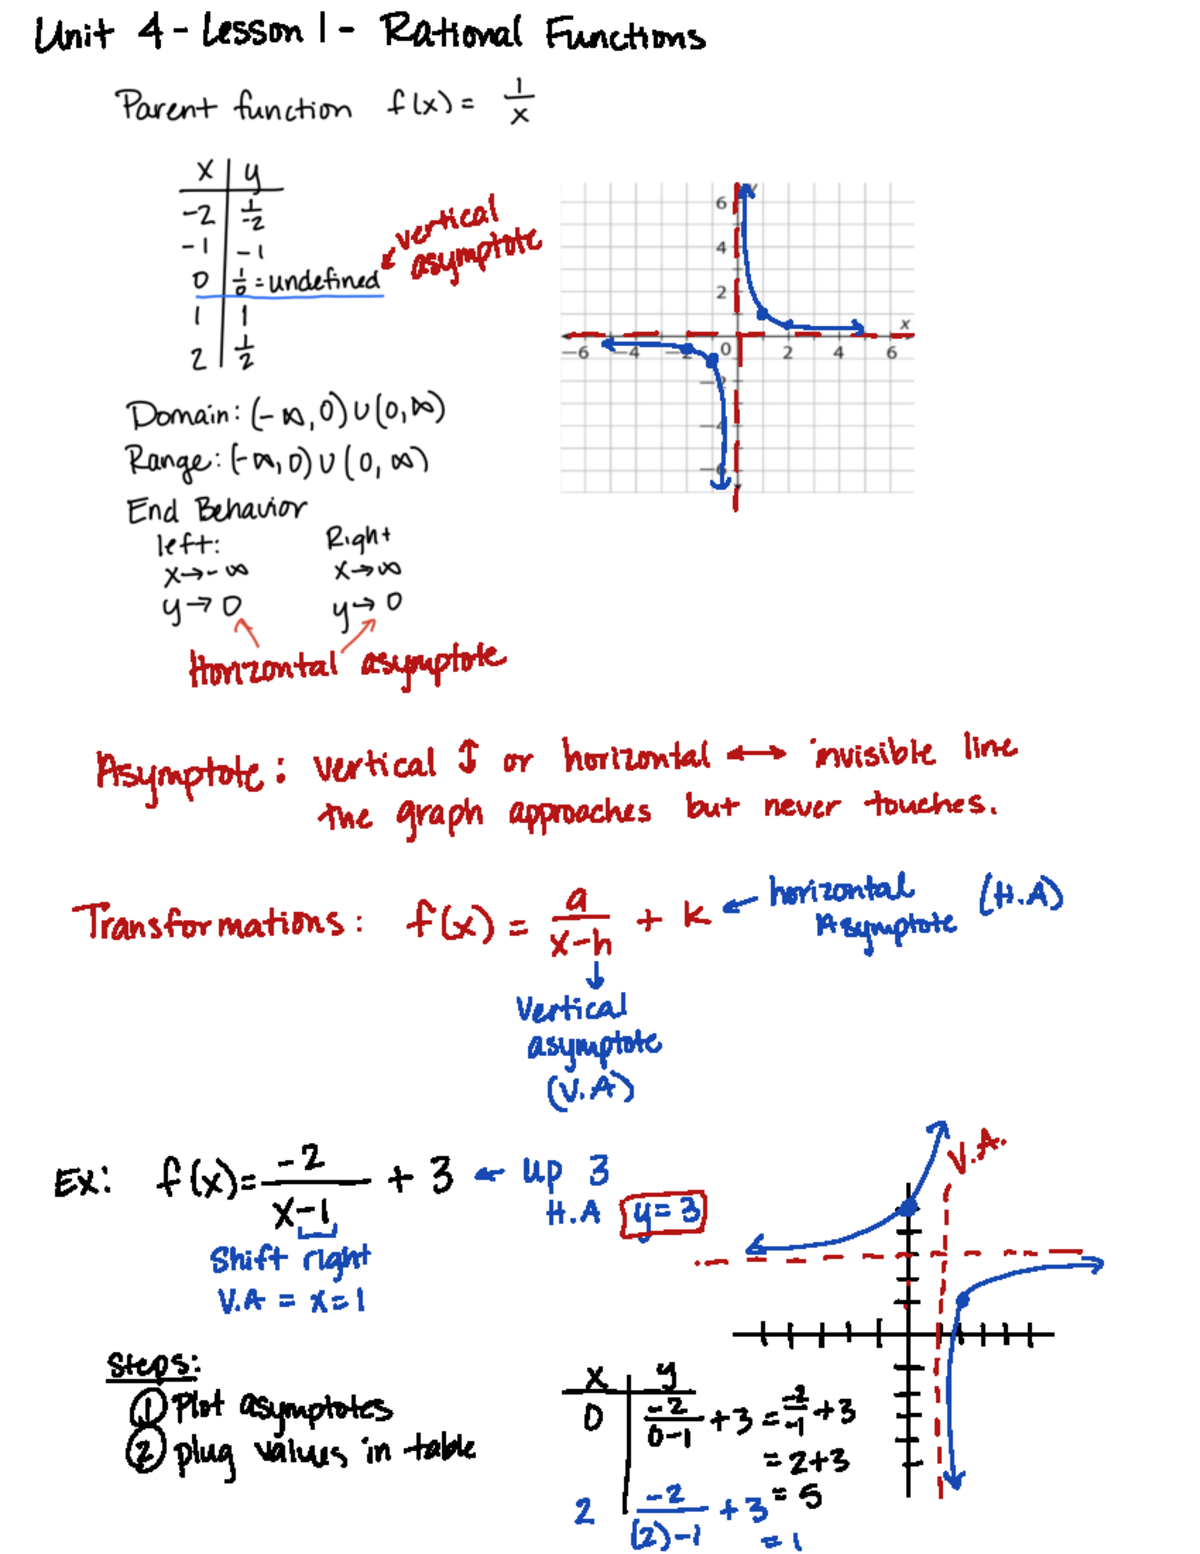 Unit 4 - Lesson 1 - Rational Functions
Parent function f(x) = 1/x
x | y
-2 | 1/-2
-1 | -1
0 | 1/0 = undefined
vertical
asymptote
1 | 1
2 | 1/2
y
6
4
2
x
-6 -4 -2 0 2 4 6
-2
-4
-6
Domain: (-∞, 0) ∪ (0, ∞)
Range: (-∞, 0) ∪ (0, ∞)
End Behavior
left: Right
x→-∞ x→∞
y→0 y→0
Horizontal asymptote
Asymptote: vertical ↕ or horizontal ↔ invisible line
the graph approaches but never touches.
Transformations: f(x) = a/(x-h) + k ← horizontal (H.A)
Asymptote
↓
Vertical
asymptote
(V.A)
Ex: f(x) = -2/(x-1) + 3 ← up 3
H.A y=3
Shift right
V.A = x=1
V.A.
Steps:
① Plot asymptotes
② plug values in table
x | y
0 | -2/(0-1) + 3 = -2/-1 + 3
= 2+3
= 5
2 | -2/((2)-1) + 3
= 1